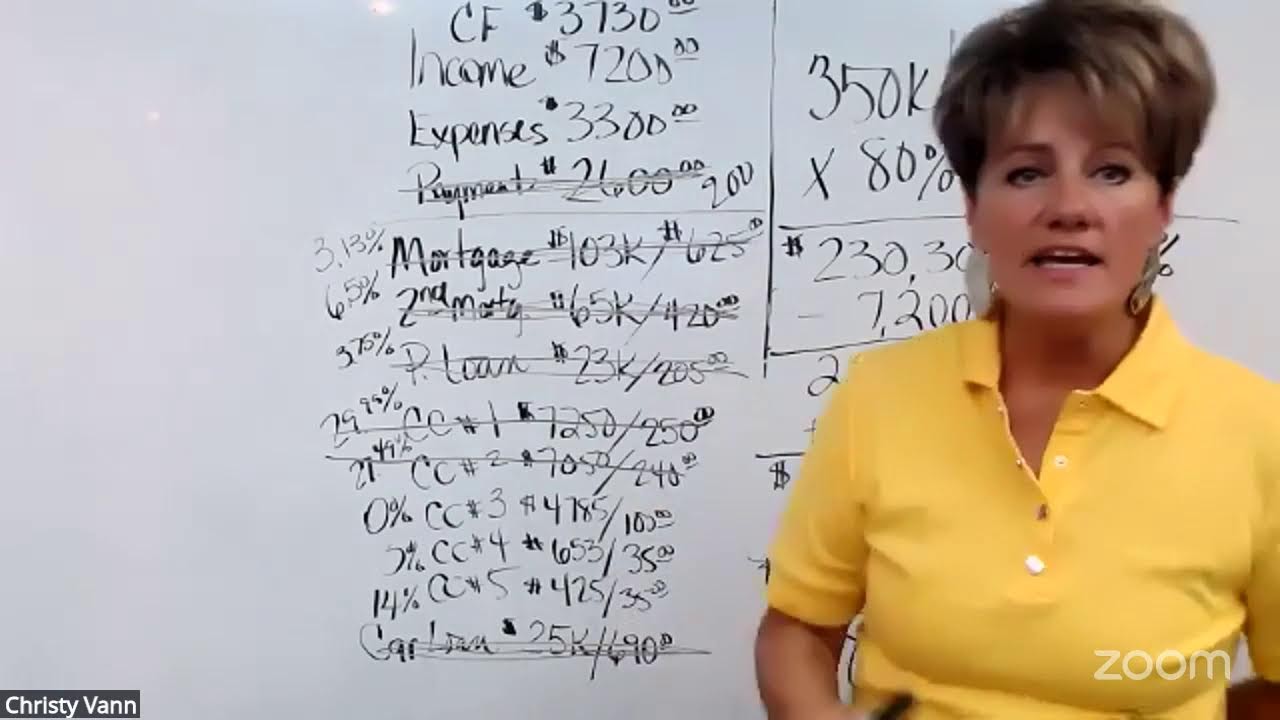 CF $3730.00
Income $7200.00
Expenses $3300.00
Payment $2600.00 200
3.13% Mortgage $103K/$625.00
6.5% 2nd Mortg $65K/420.00
3.75% P. Loan $23K/205.00
29.99% CC#1 $7250/250.00
21.49% CC#2 $7050/240.00
0% CC#3 $4785/100.00
5% CC#4 $653/35.00
14% CC#5 $425/35.00
Car Loan $25K/690.00
350K
X 80%
$230,30
- 7,200
2
$
zoom
Christy Vann